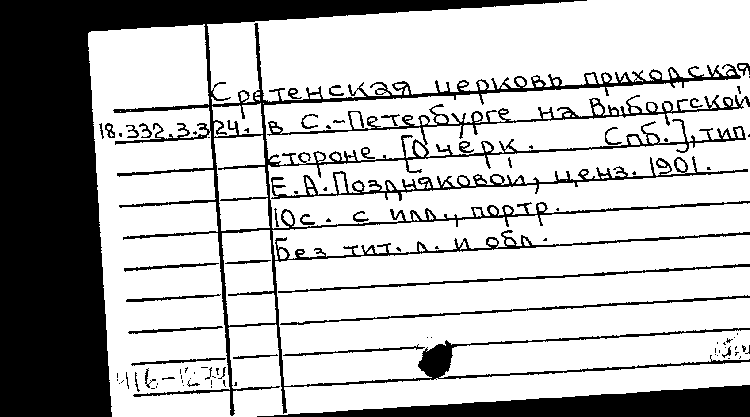 Сретенская церковь приходская
18.332.3.324. в С.-Петербурге на Выборгской
стороне. [Очерк. Спб.], тип.
Е.А.Поздняковой, ценз. 1901.
10с. с илл., портр.
Без тит. л. и обл.